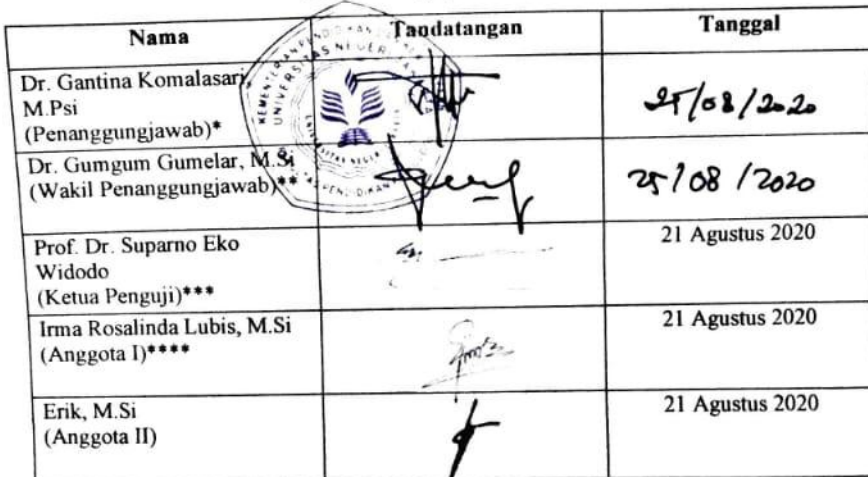 Nama Tandatangan Tanggal
Dr. Gantina Komalasari,
M.Psi
(Penanggungjawab)*
25/08/2020
Dr. Gumgum Gumelar, M.Si
(Wakil Penanggungjawab)**
25/08/2020
Prof. Dr. Suparno Eko
Widodo
(Ketua Penguji)***
21 Agustus 2020
Irma Rosalinda Lubis, M.Si
(Anggota I)****
21 Agustus 2020
Erik, M.Si
(Anggota II)
21 Agustus 2020
UNIVERSITAS NEGERI